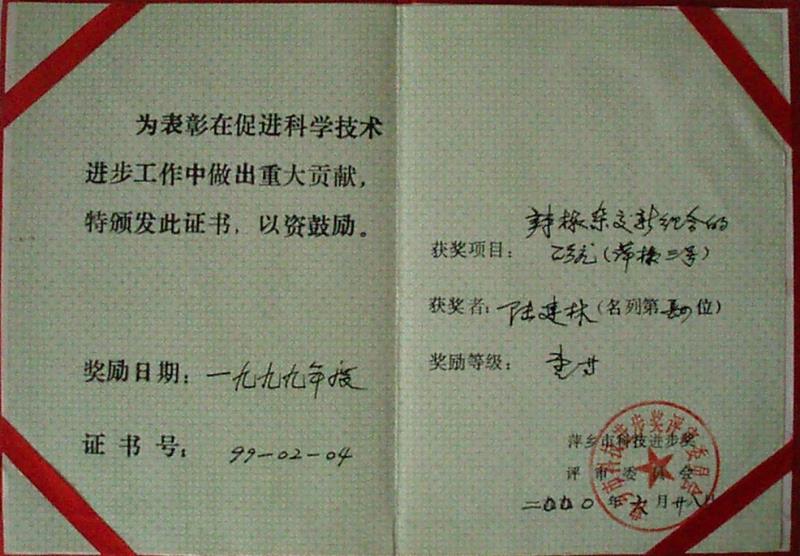 为表彰在促进科学技术
进步工作中做出重大贡献，
特颁发此证书，以资鼓励。
奖励日期：一九九九年度
证书号：99-02-04
辣椒杂交新组合的
获奖项目：研究（萍椒三号）
获奖者：陆建林（名列第 位）
奖励等级：
萍乡市科技进步奖
评审委员会
二000年六月廿八日